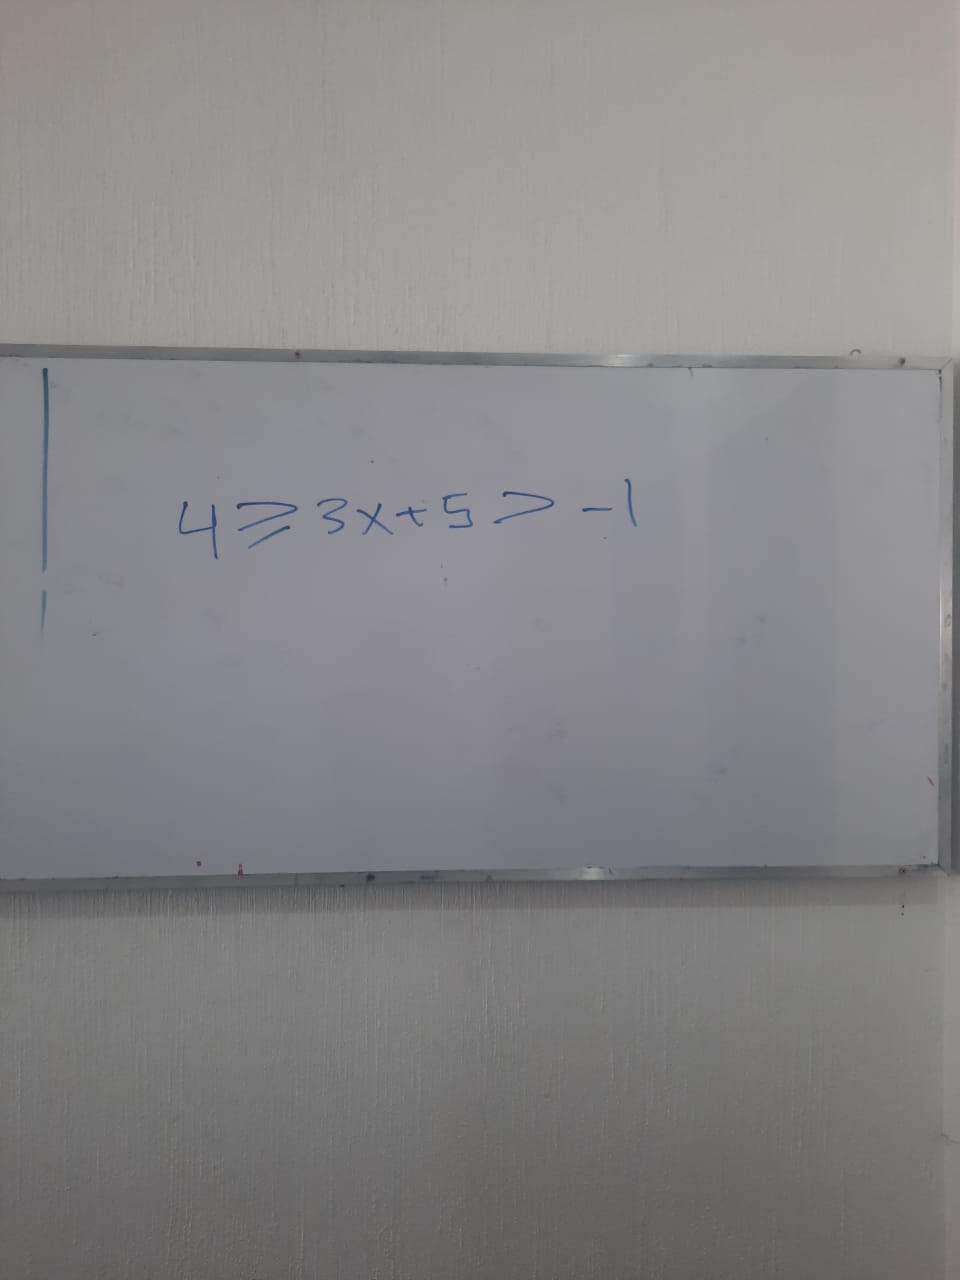 4 ⩾ 3x + 5 > -1